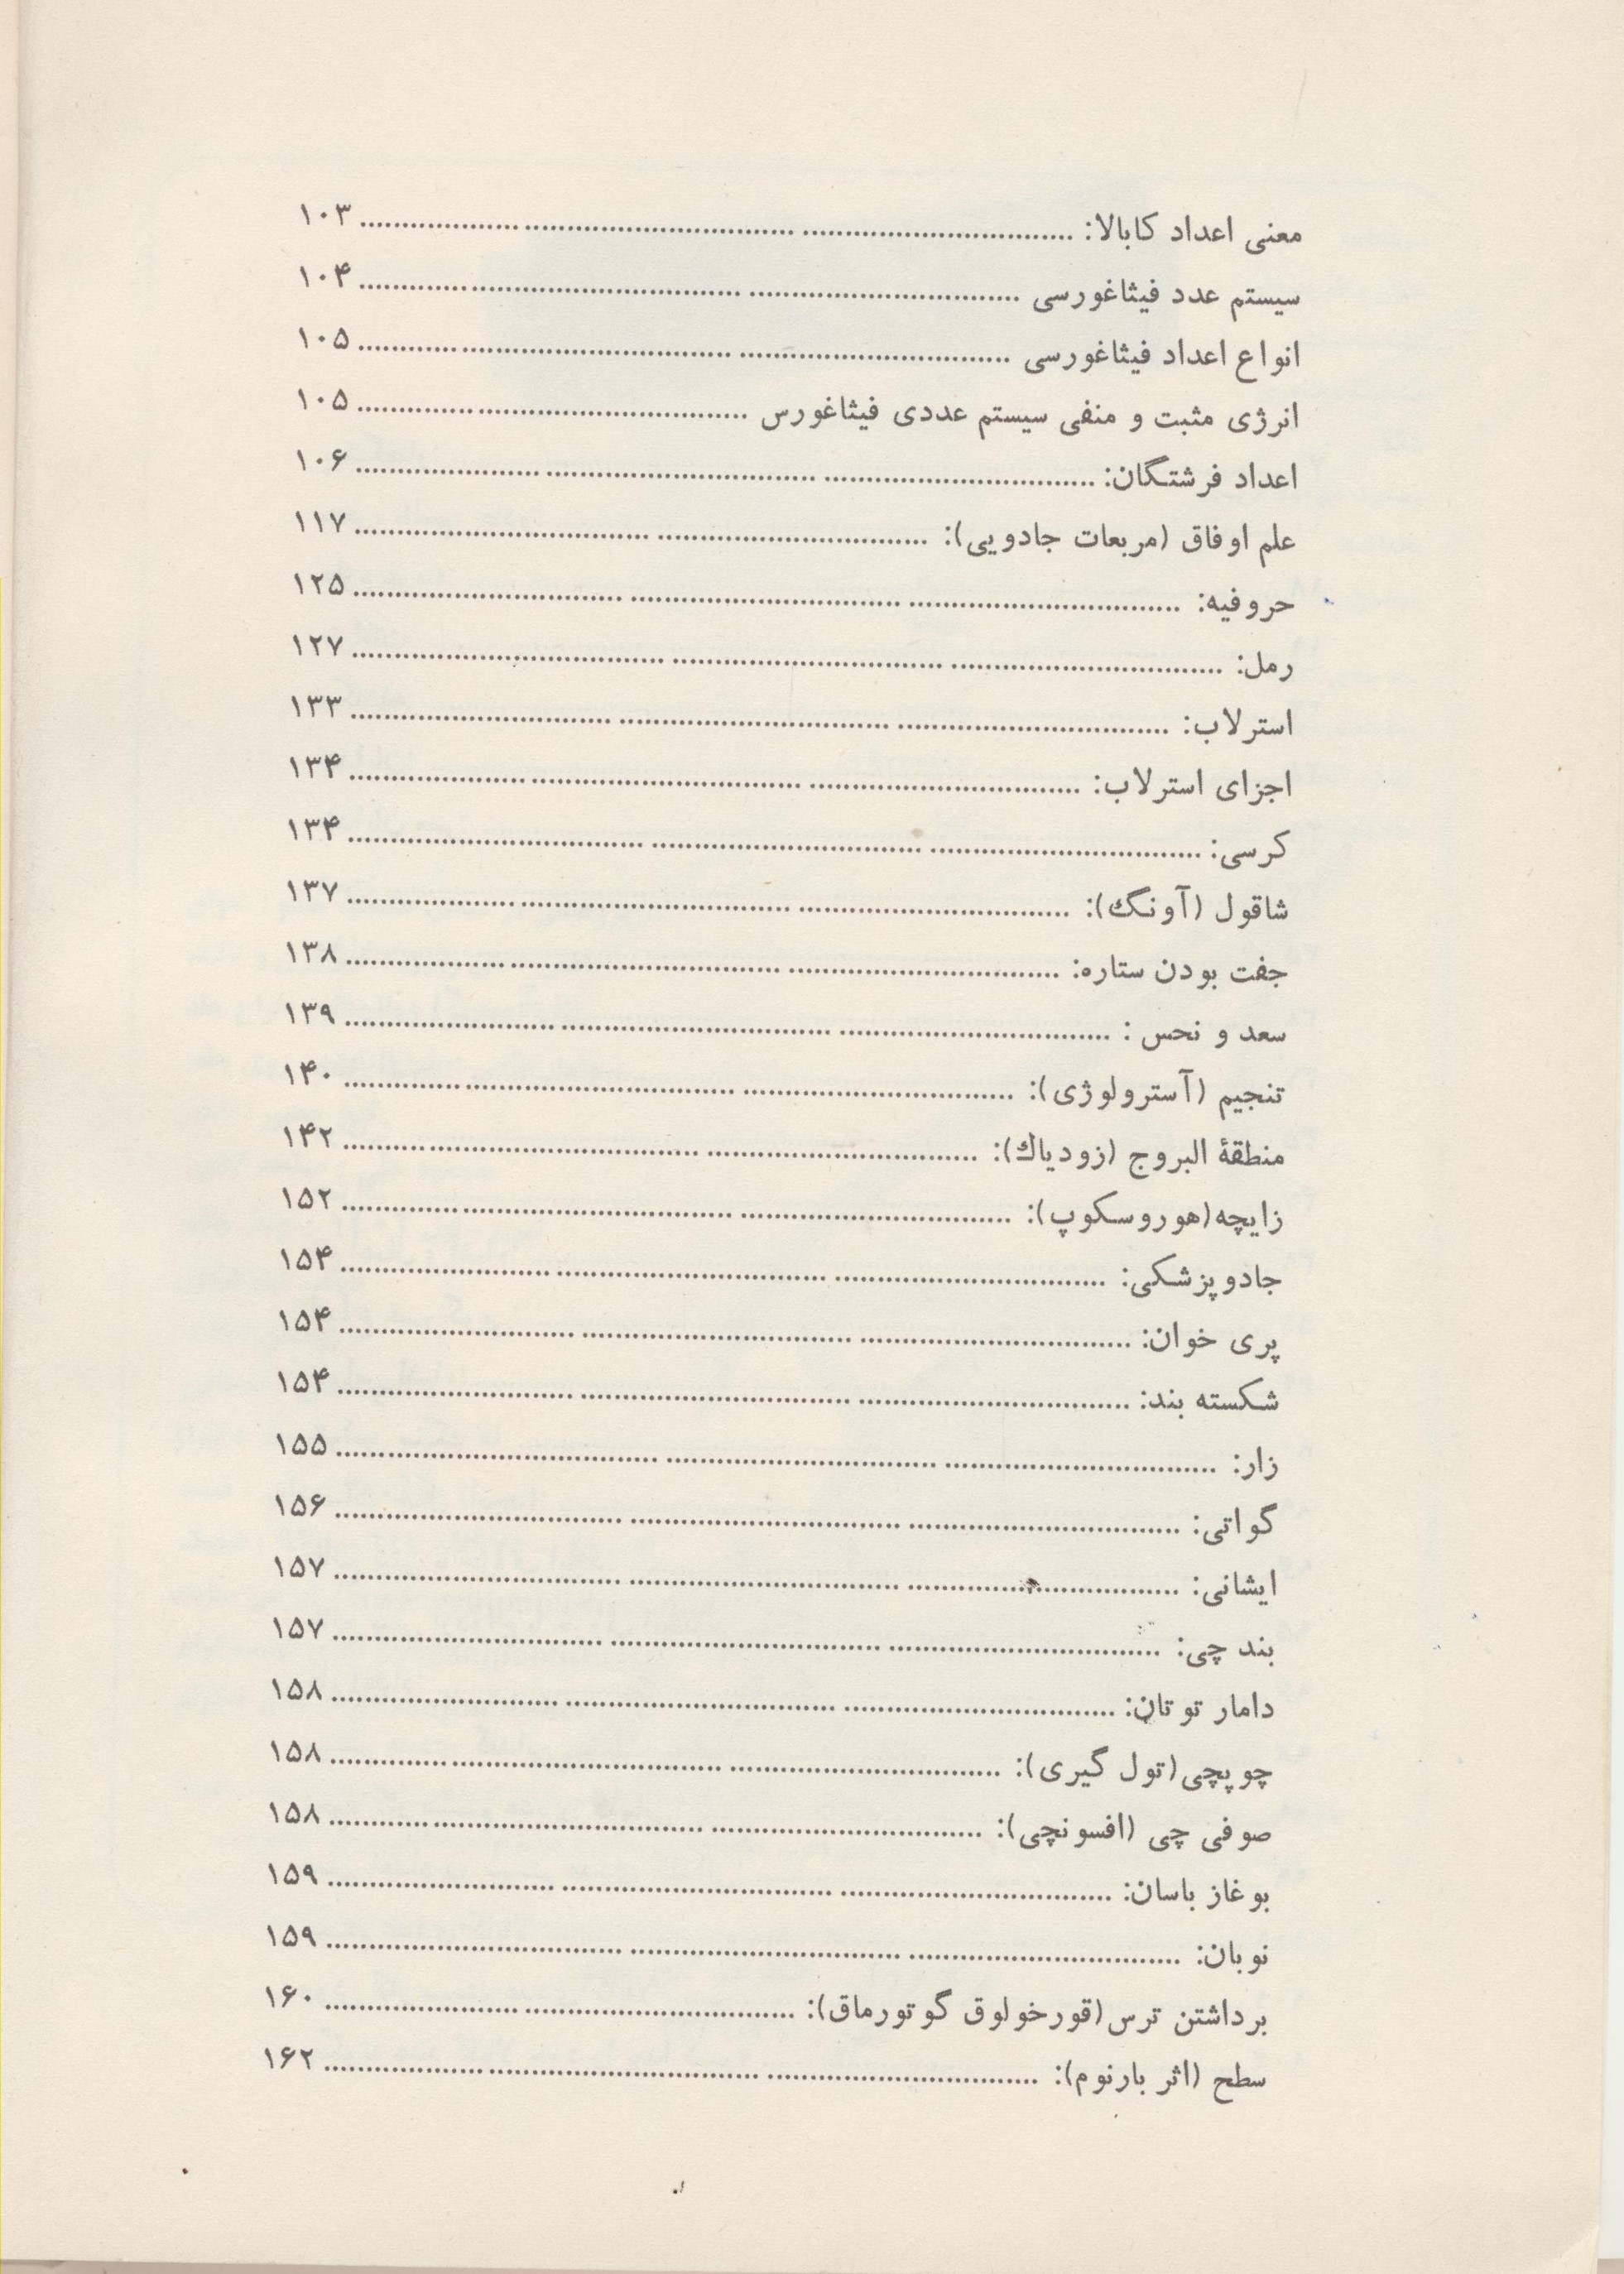 معنی اعداد کابالا: ........................ ۱۰۳
سیستم عدد فیثاغورسی ........................ ۱۰۴
انواع اعداد فیثاغورسی ........................ ۱۰۵
انرژی مثبت و منفی سیستم عددی فیثاغورس ........................ ۱۰۵
اعداد فرشتگان: ........................ ۱۰۶
علم اوفاق (مربعات جادویی): ........................ ۱۱۷
حروفیه: ........................ ۱۲۵
رمل: ........................ ۱۲۷
استرلاب: ........................ ۱۳۳
اجزای استرلاب: ........................ ۱۳۴
کرسی: ........................ ۱۳۴
شاقول (آونگ): ........................ ۱۳۷
جفت بودن ستاره: ........................ ۱۳۸
سعد و نحس : ........................ ۱۳۹
تنجیم (آسترولوژی): ........................ ۱۴۰
منطقۀ البروج (زودیاك): ........................ ۱۴۲
زایچه(هوروسکوپ): ........................ ۱۵۲
جادوپزشکی: ........................ ۱۵۴
پری خوان: ........................ ۱۵۴
شکسته بند: ........................ ۱۵۴
زار: ........................ ۱۵۵
گواتی: ........................ ۱۵۶
ایشانی: ........................ ۱۵۷
بند چی: ........................ ۱۵۷
دامار توتان: ........................ ۱۵۸
چوپچی(تول گیری): ........................ ۱۵۸
صوفی چی (افسونچی): ........................ ۱۵۸
بوغاز باسان: ........................ ۱۵۹
نوبان: ........................ ۱۵۹
برداشتن ترس(قورخولوق گوتورماق): ........................ ۱۶۰
سطح (اثر بارنوم): ........................ ۱۶۲